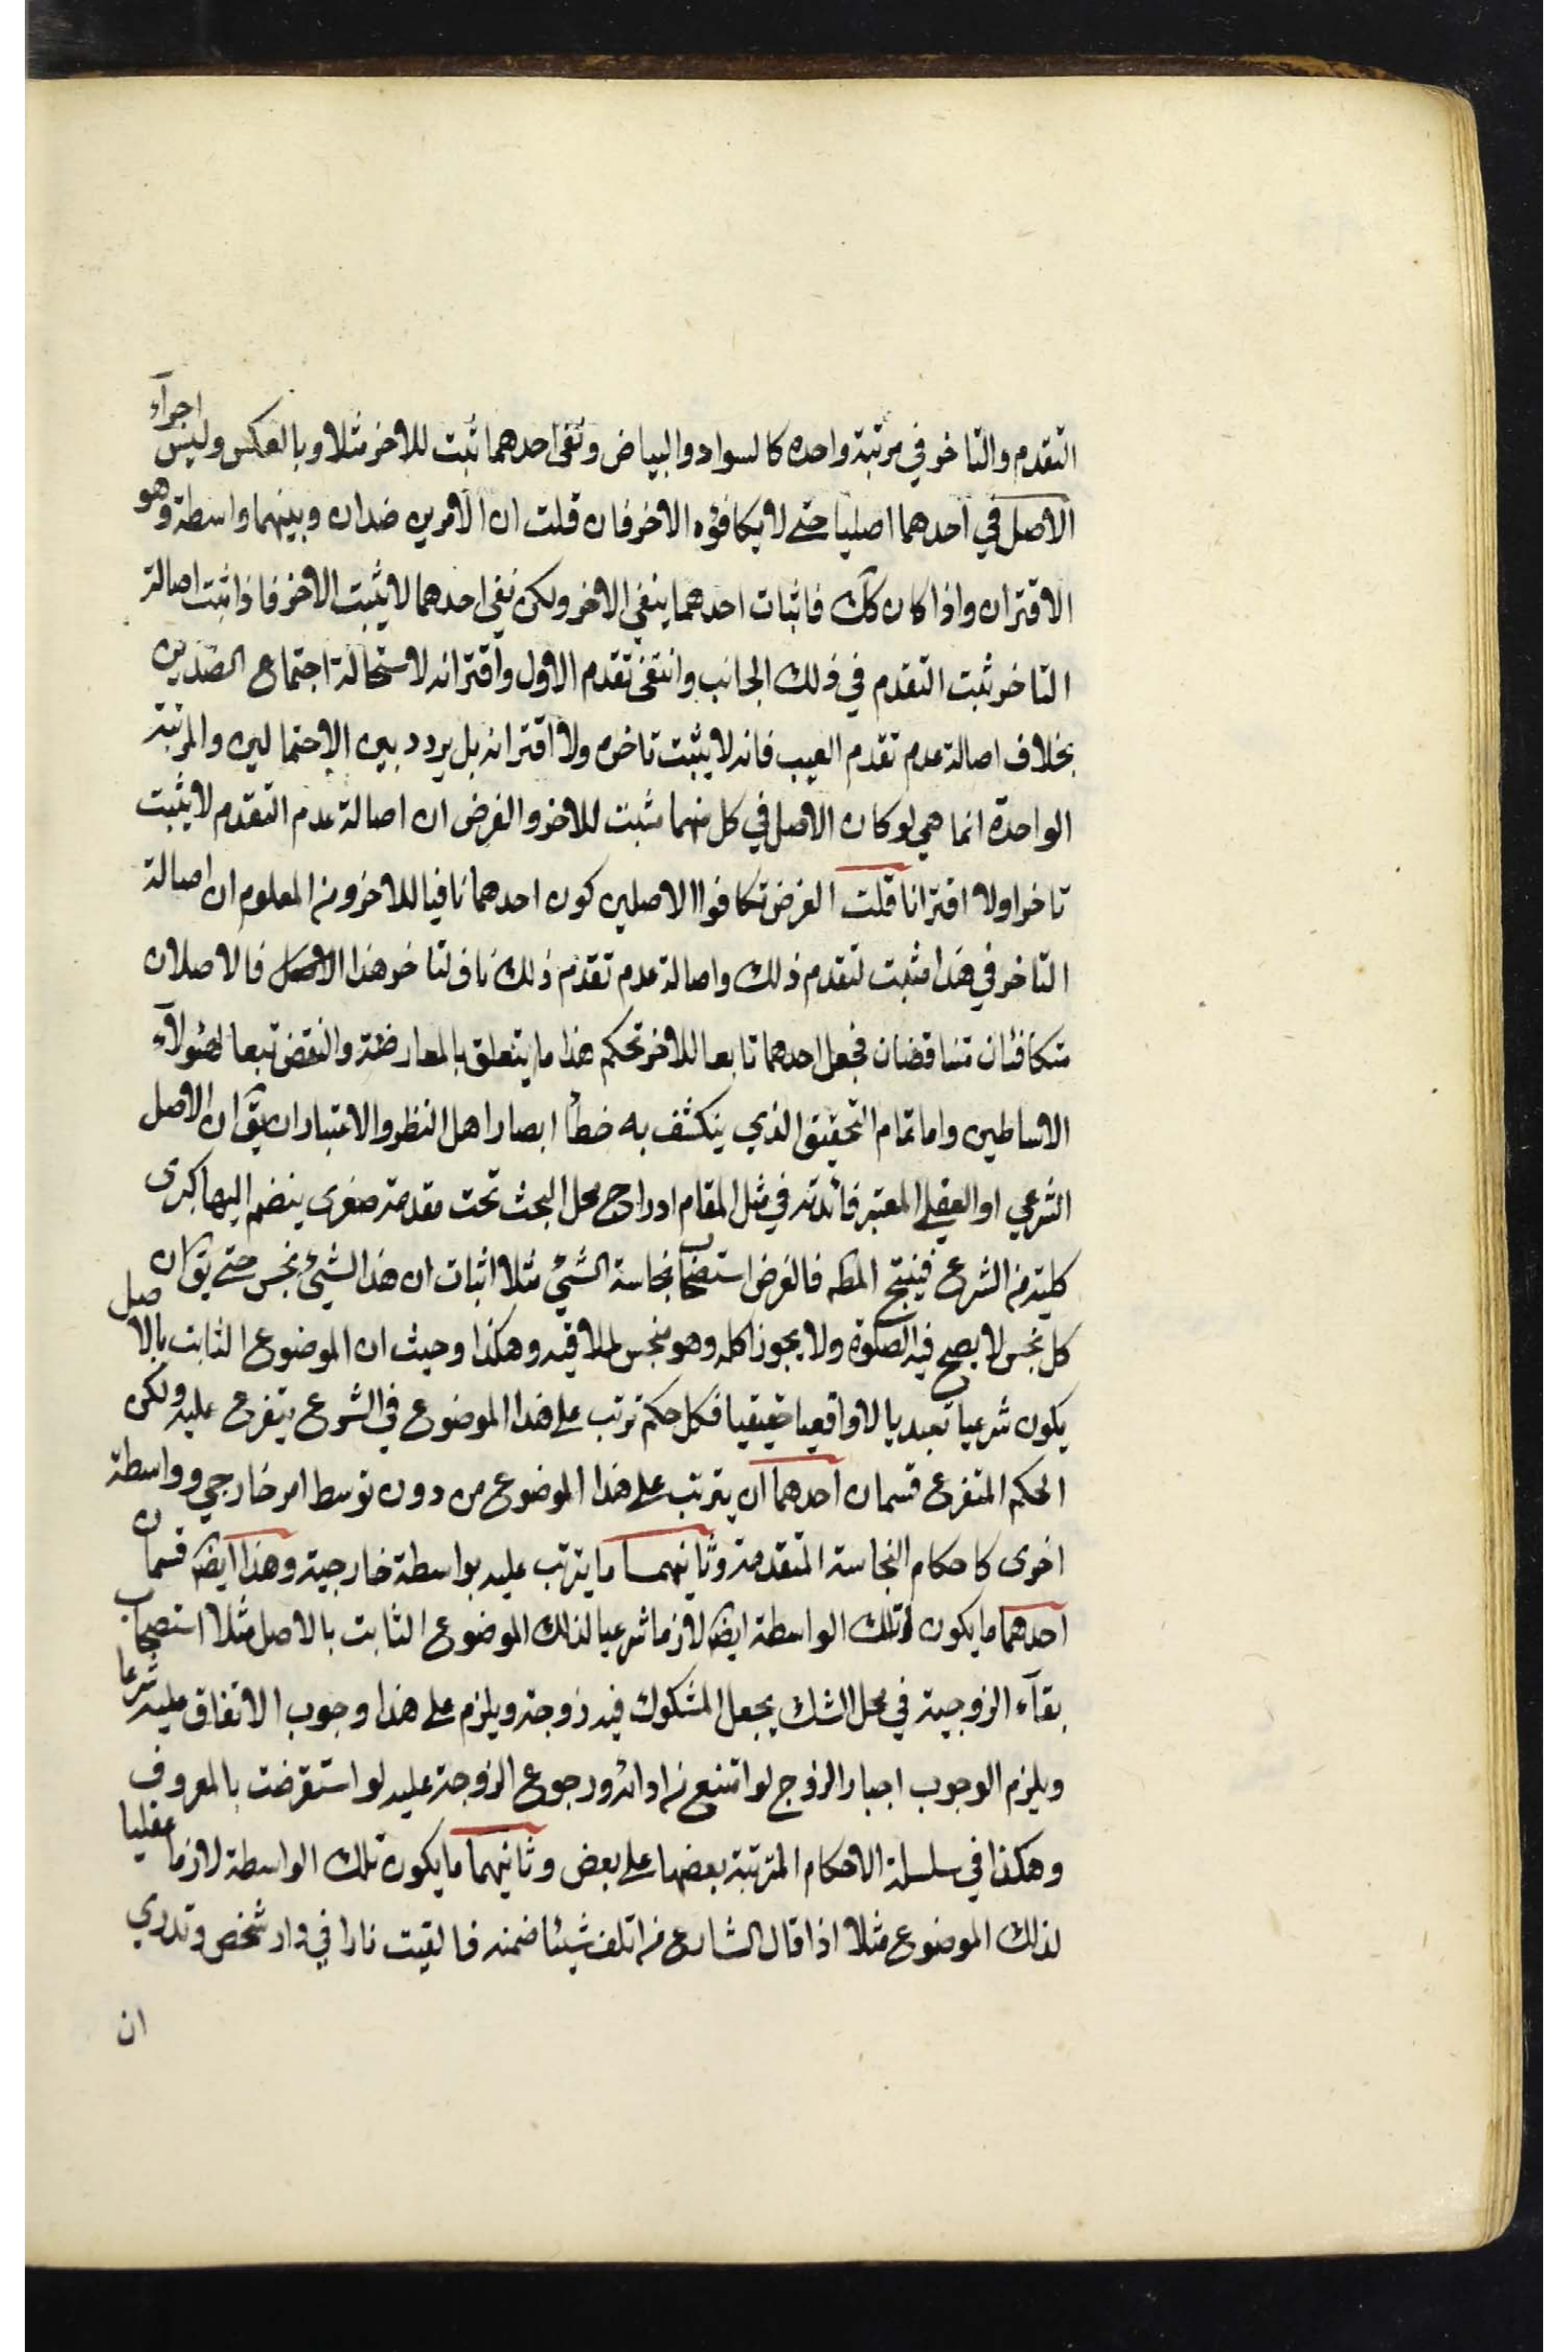 التقدم والتاخر في مرتبة واحده كالسواد والبياض ونفى احدهما ثبت للاخر مثلا وبالعكس وليس اجرآء
الاصل في احدهما اصليا حتى لا يكافؤه الاخر فان قلت ان الامرين ضدان وبينهما واسطة وهو
الاقتران واذا كان كك فاثبات احدهما ينفي الاخر ولكن نفي احدهما لا يثبت الاخر فاذا ثبت اصالة
التاخر ثبت التقدم في ذلك الجانب وانتفى تقدم الاول واقترانه لاستحالة اجتماع الضدين
بخلاف اصالة عدم تقدم العيب فانه لا يثبت تاخره ولا اقترانه بل يردد بين الاحتمالين والمرتبة
الواحدة انما هي لو كان الاصل في كل منهما مثبت للاخر والفرض ان اصالة عدم التقدم لا يثبت
تاخرا ولا اقترانا قلت الغرض تكافوا الاصلين كون احدهما نافيا للاخر ومن المعلوم ان اصالة
التاخر في هذا مثبت لتقدم ذلك واصالة عدم تقدم ذلك ناف لتاخر هذا الاصل فالاصلان
متكافئان متناقضان فجعل احدهما تابعا للاخر تحكم هذا ما يتعلق بالمعارضة والنقض تبعا لهئولآء
الاساطين واما تمام التحقيق الذي ينكشف به خطأ ابصار اهل النظر والاعتبار ان يق ان الاصل
الشرعي او العقلي المعتبر فائدته في مثل المقام ادراج محل البحث تحت مقدمة صغرى ينضم اليها كبرى
كلية من الشرع فينتج المطه فالغرض استصحاب نجاسة الشيء مثلا اثبات ان هذا الشيء نجس حتى يق ان
كل نجس لا يصح فيه الصلوة ولا يجوز اكله وهو منجس لملاقيه وهكذا وحيث ان الموضوع الثابت بالاصل
يكون شرعيا تعبديا لا واقعيا حقيقيا فكل حكم ترتب على هذا الموضوع في الشرع يتفرع عليه ولكن
الحكم المتفرع قسمان احدهما ان يترتب على هذا الموضوع من دون توسط امر خارجي وواسطة
اخرى كاحكام النجاسة المتقدمة وثانيهما ما يترتب عليه بواسطة خارجية وهذا ايضه قسمان
احدهما ما يكون تلك الواسطة ايضه لازما شرعيا لذلك الموضوع الثابت بالاصل مثلا استصحاب
بقآء الزوجية في محل الشك يجعل المشكوك فيه زوجة ويلزم على هذا وجوب الانفاق عليه شرعا
ويلزم الوجوب اجبار الزوج لو امتنع من ادائه ورجوع الزوجة عليه لو استقرضت بالمعروف
وهكذا في سلسلة الاحكام المترتبة بعضها على بعض وثانيهما ما يكون تلك الواسطة لازما عقليا
لذلك الموضوع مثلا اذا قال الشارع من اتلف شيئا ضمنه فالقيت نارا في دار شخص وتدري
ان